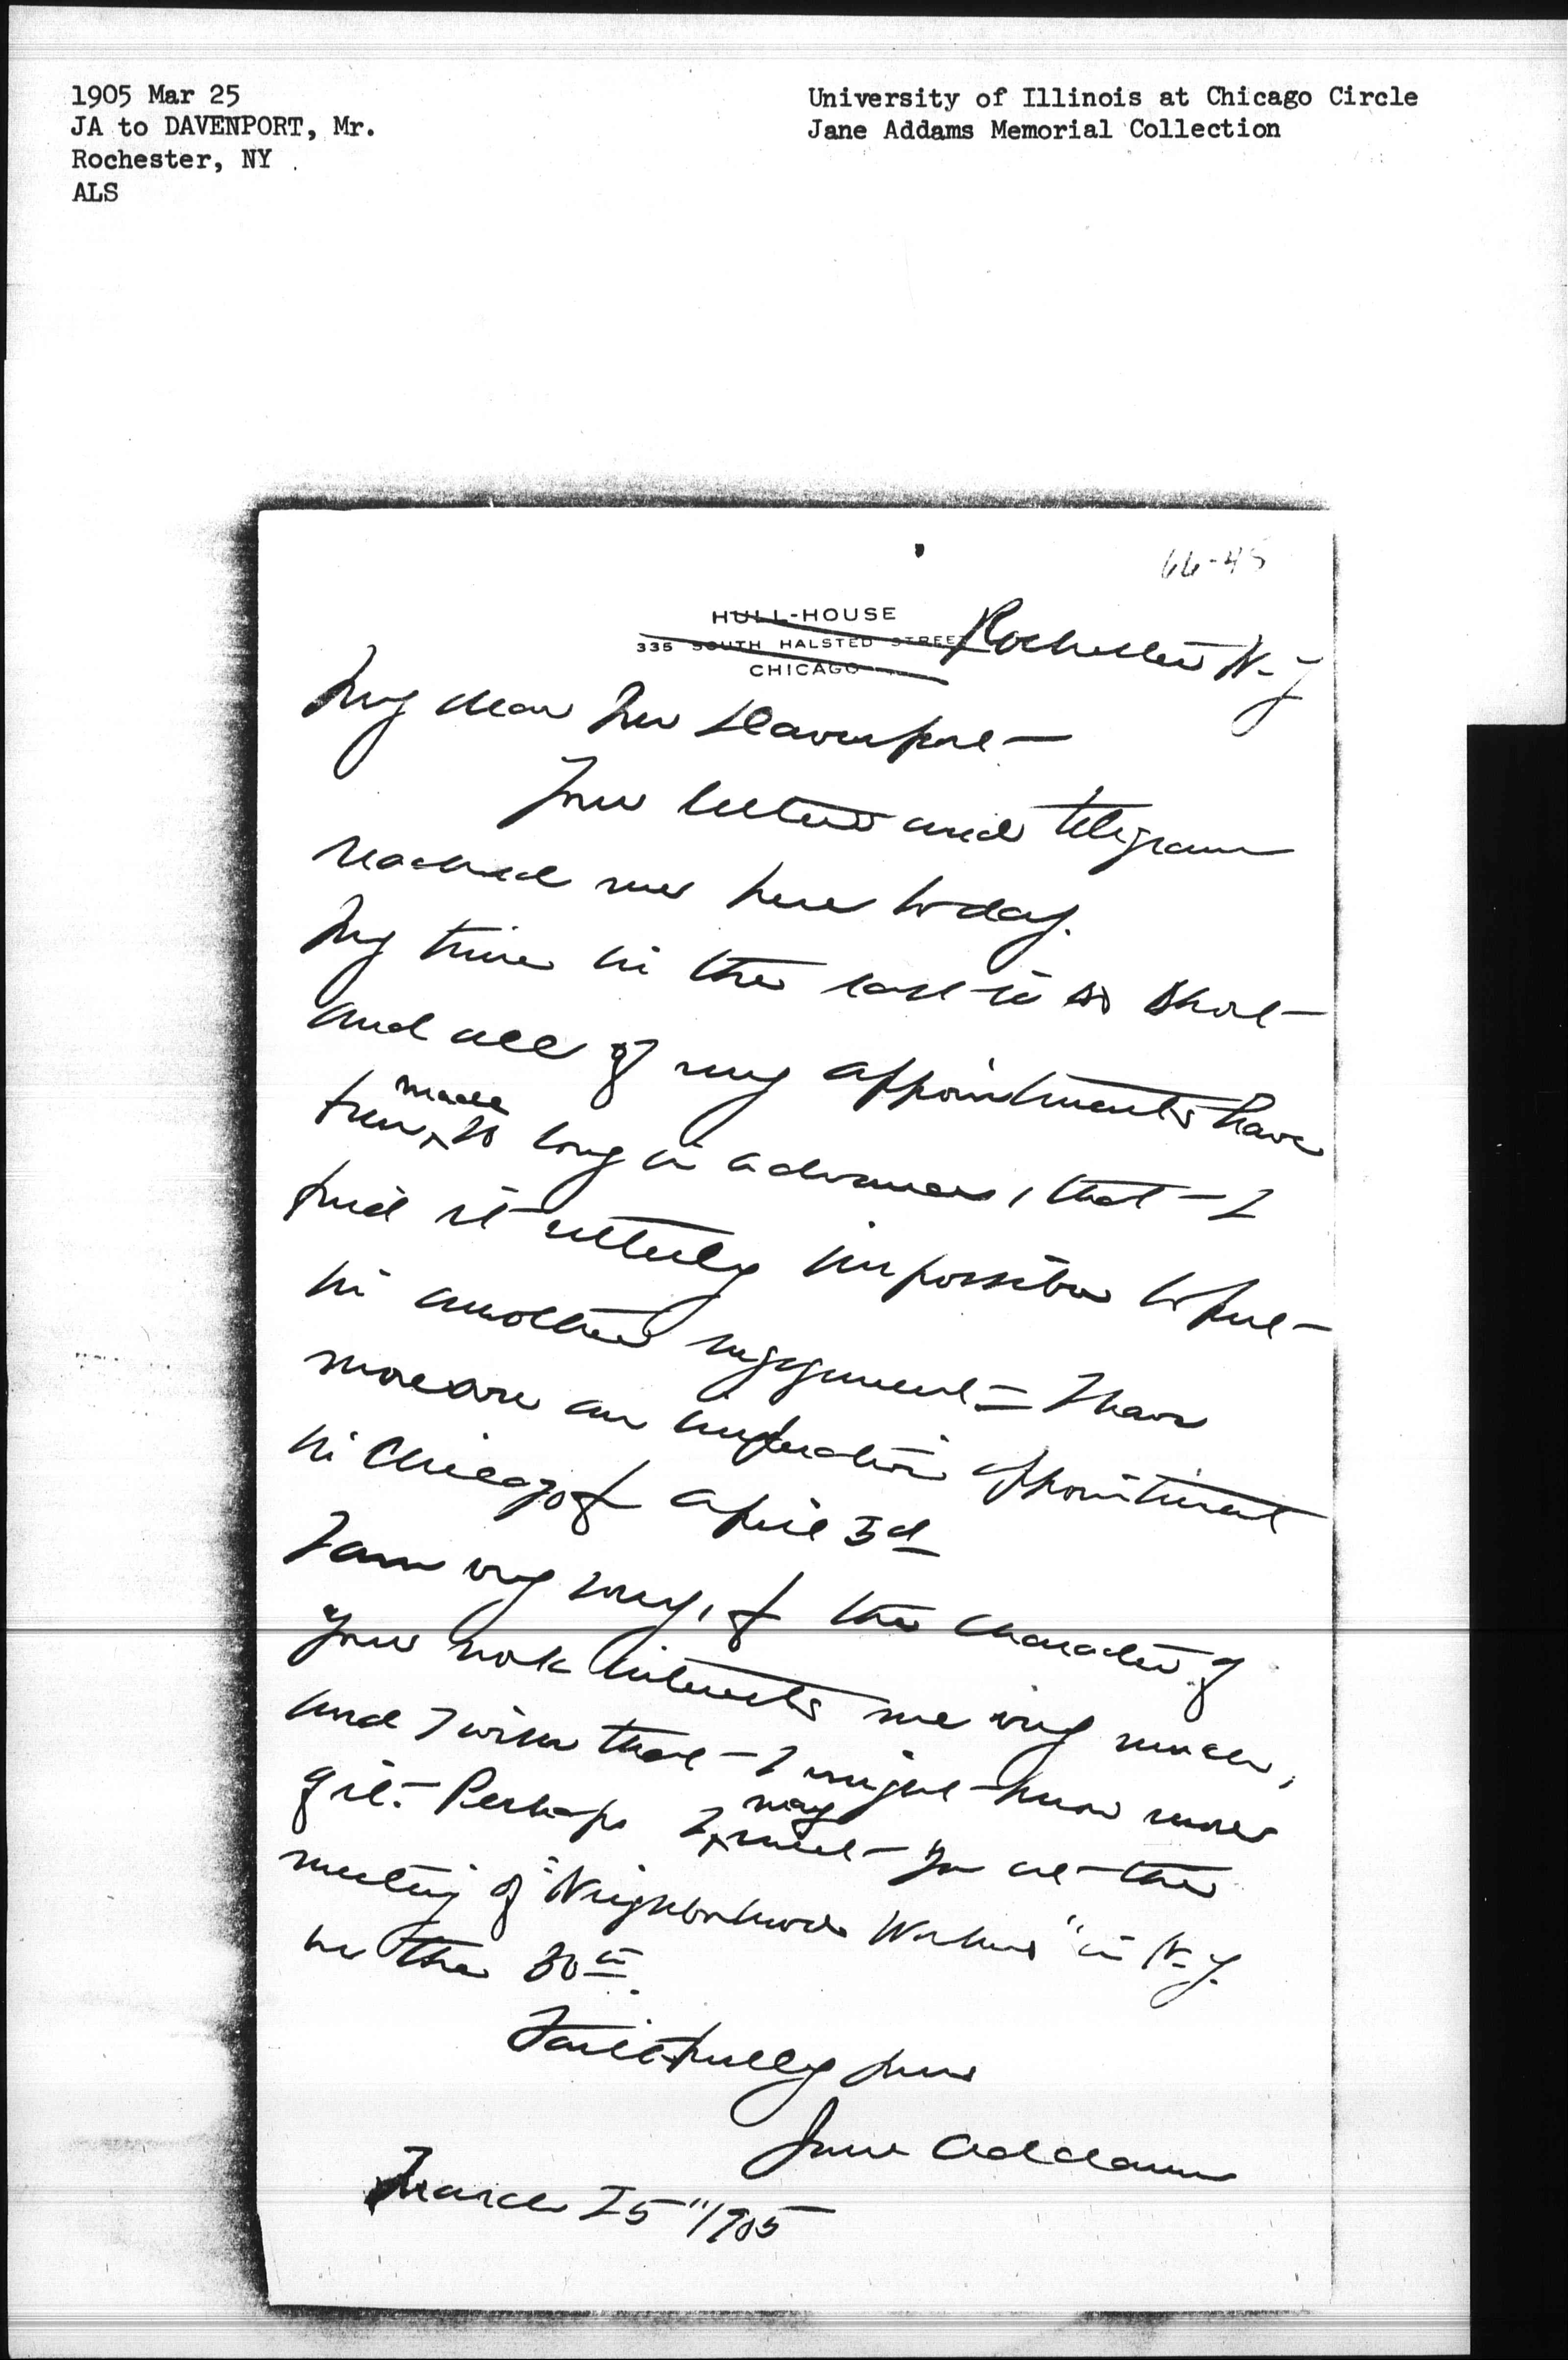 1905 Mar 25
JA to DAVENPORT, Mr.
Rochester, NY
ALS
University of Illinois at Chicago Circle
Jane Addams Memorial Collection
66-45
HULL-HOUSE
335 SOUTH HALSTED STREET
CHICAGO
Rochester N-Y
My dear Mr Davenport—
Your letter and telegram
reached me here today.
My time in the east is so short—
and all of my appointments have
been made so long in advance, that I
find it utterly impossible to put
in another engagement — I have
moreover an imperative appointment
in Chicago April 3d
I am very sorry, the character of
your work interests me very much,
and I wish that I might know more
of it. Perhaps I may meet you at the
meeting of "Neighborhood Workers" in N-Y.
on the 30th.
Faithfully yours
Jane Addams
March 25" 1905